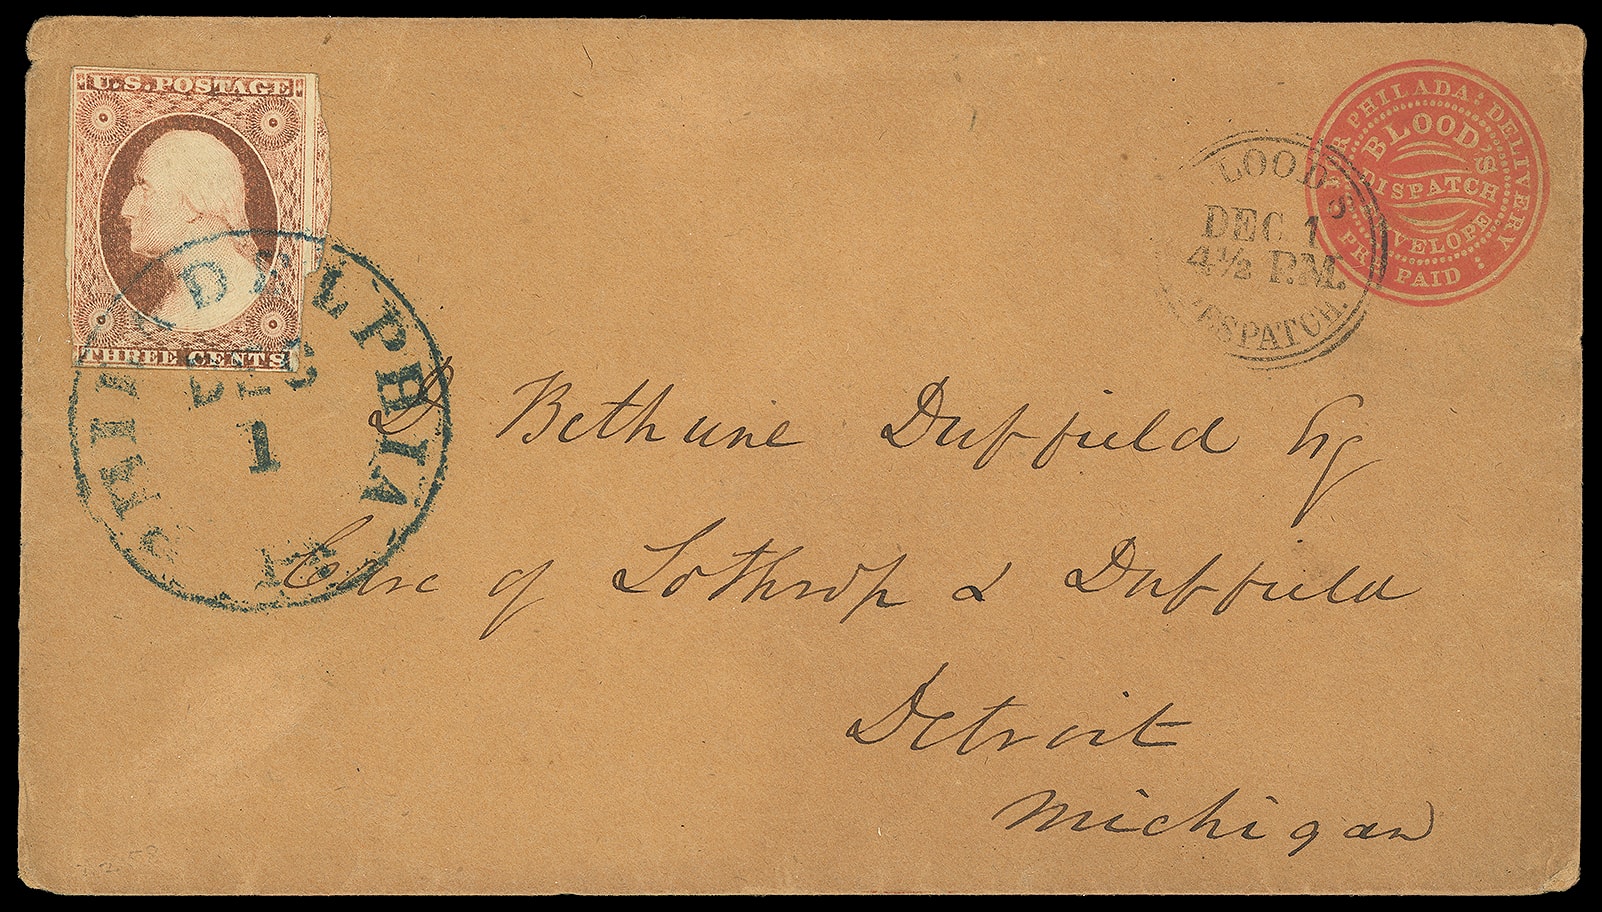 U.S. POSTAGE
THREE CENTS
PHILADELPHIA
DEC
1
BLOOD'S
DEC 1
4½ P.M.
DESPATCH.
FOR PHILADA: DELIVERY
BLOOD'S
DISPATCH
ENVELOPE
PRE PAID
D. Bethune Duffield Esq
Care of Lothrop & Duffield
Detroit
Michigan